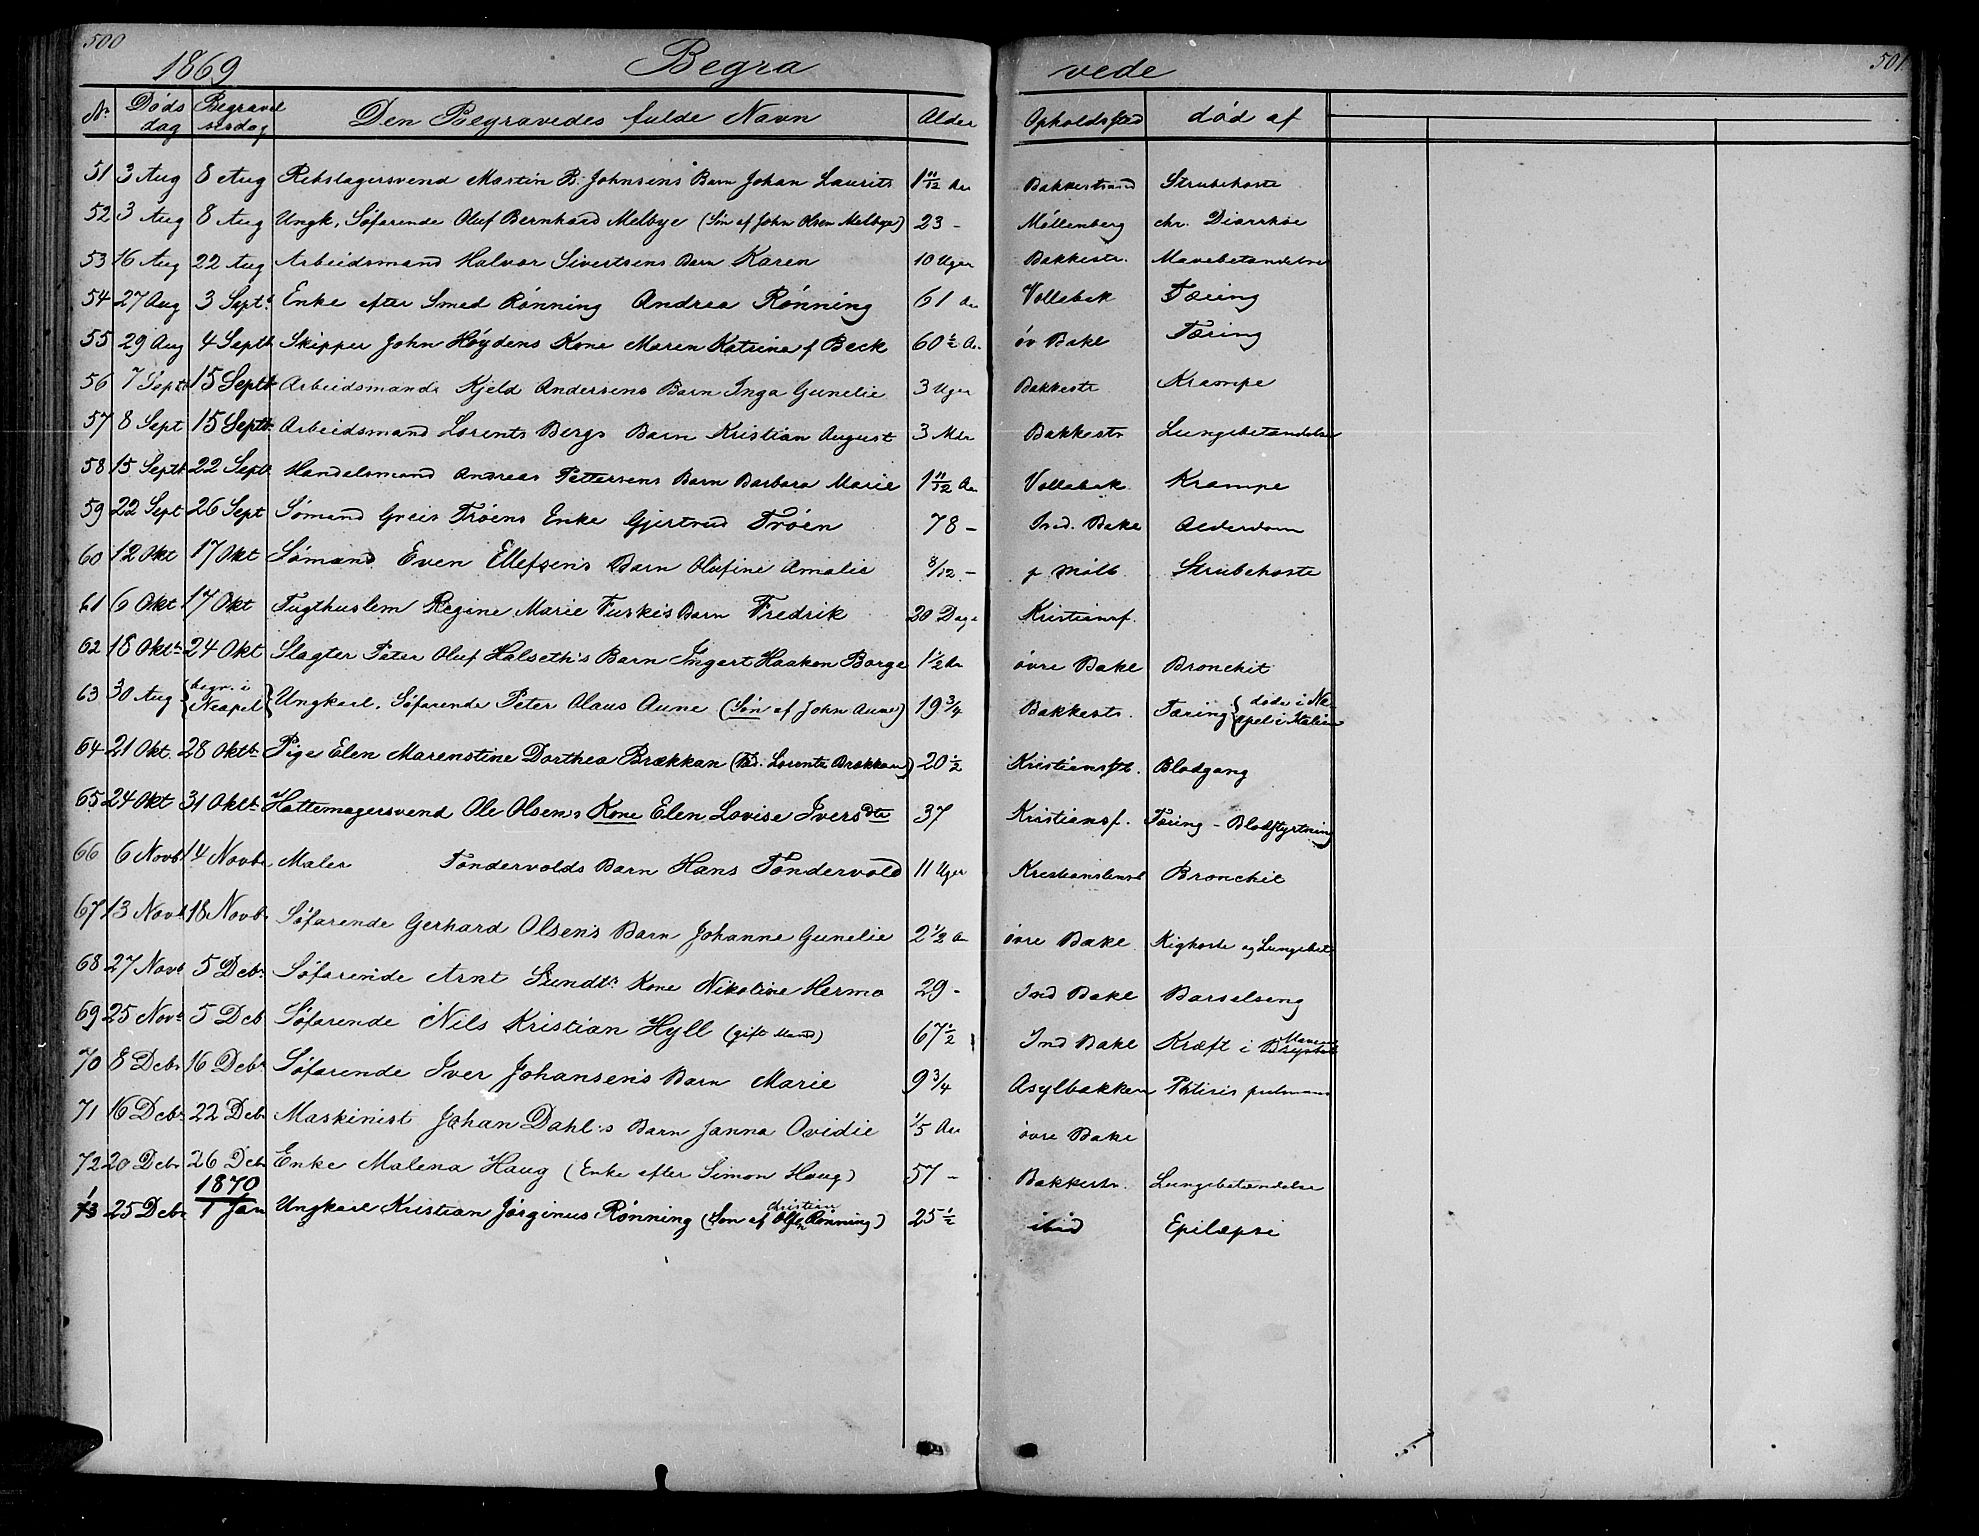 500
1869 Begra vede 501
Nr. Døds dag Begravel sesdag Den Begravedes fulde Navn Alder Opholdssted død af
51 3 Aug 8 Aug Rebslagersvend Martin B. Johnsens Barn Johan Laurits 1 11/12 Aar Bakkestrand Strubehoste
52 3 Aug 8 Aug Ungk. Søfarende Oluf Bernhard Melbye (Søn af John Olsen Melbye) 23 - Møllenberg chr. Diarrhøe
53 16 Aug 22 Aug Arbeidsmand Halvor Sivertsens Barn Karen 10 Uger Bakkestr. Mavebetændelse
54 27 Aug 3 Septr. Enke efter Smed Rønning Andrea Rønning 61 Aar Vollabak Tæring
55 29 Aug 4 Septb Skipper John Høydens Kone Maren Katrine f Beck 60 1/2 A. øv Bakl Tæring
56 7 Septb 15 Septb Arbeidsmands Kjeld Andersens Barn Inga Gunelie 3 Uger Bakkestr Krampe
57 8 Sept 15 Septb. Arbeidsmand Lorents Bergs Barn Kristian August 3 Mdr Bakkestr Lungebetændelse
58 15 Septb 22 Septb. Handelsmand Andreas Pettersens Barn Barbara Marie 1 11/12 Aar Vollabak Krampe
59 22 Sept 26 Sept Sømand Greis Trøens Enke Gjertrud Trøen 78 - Ind. Bakl Alderdom
60 12 Okt 17 Okt Sømand Even Ellefsen's Barn Olufine Amalie 8/12 - p Mølb. Strubehoste
61 6 Okt 17 Okt Tugthuslem Regine Marie Fuskes Barn Fredrik 20 Dage Kristiansf.
62 18 Oktb 24 Okt Slagter Peter Oluf Halseth's Barn Ingert Haaken Borge 1 1/2 Aar øvre Bakl Bronchit
63 30 Aug {begr. i Neapel} Ungkarl. Søfarende Peter Olaus Aune (Søn af John Aune) 19 3/4 Bakkestr. Tæring {døde i Neapel i Italien
64 21 Okt. 28 Oktb Pige Elen Marenstine Dorthea Brækkan (Fad. Lorents Brækkan) 20 1/2 Kristiansft. Blodgang
65 24 Okt 31 Oktb. Hattemagersvend Ole Olsens Kone Elen Lovise Iversdtr 37 Kristiansf. Tæring - Blodstyrtning
66 6 Novb 14 Novb. Maler Tøndervolds Barn Hans Tøndervold 11 Uger Kristianstensb Bronchit
67 13 Novb 18 Novb. Søfarende Gerhard Olsen's Barn Johanne Gunelie 2 1/2 A øvre Bakl Kighoste og Lungebet
68 27 Novb 5 Debr. Søfarende Arnt Sundts Kone Nikoline Hermo 29 - Ind Bakl Barselseng
69 25 Novb 5 Deb Søfarende Nils Kristian Hyll (gift Mand) 67 1/2 Ind Bakl Kræft i Maven
70 8 Debr 16 Debr Søfarende Iver Johansen's Barn Marie 9 3/4 Asylbakken Phtisis pulmonum
71 16 Debr. 22 Debr Maskinist Johan Dahl's Barn Janna Ovidie 1/5 Aar øvre Bakl
72 20 Debr 26 Debr Enke Malena Haug (Enke efter Simon Haug) 57 - Bakkestr. Lungebetændelse
1870
1 73 25 Debr 1 Jan Ungkarl Kristian Jørginus Rønning (Søn af Kristian Rønning) 25 1/2 ibid Epilæpsi